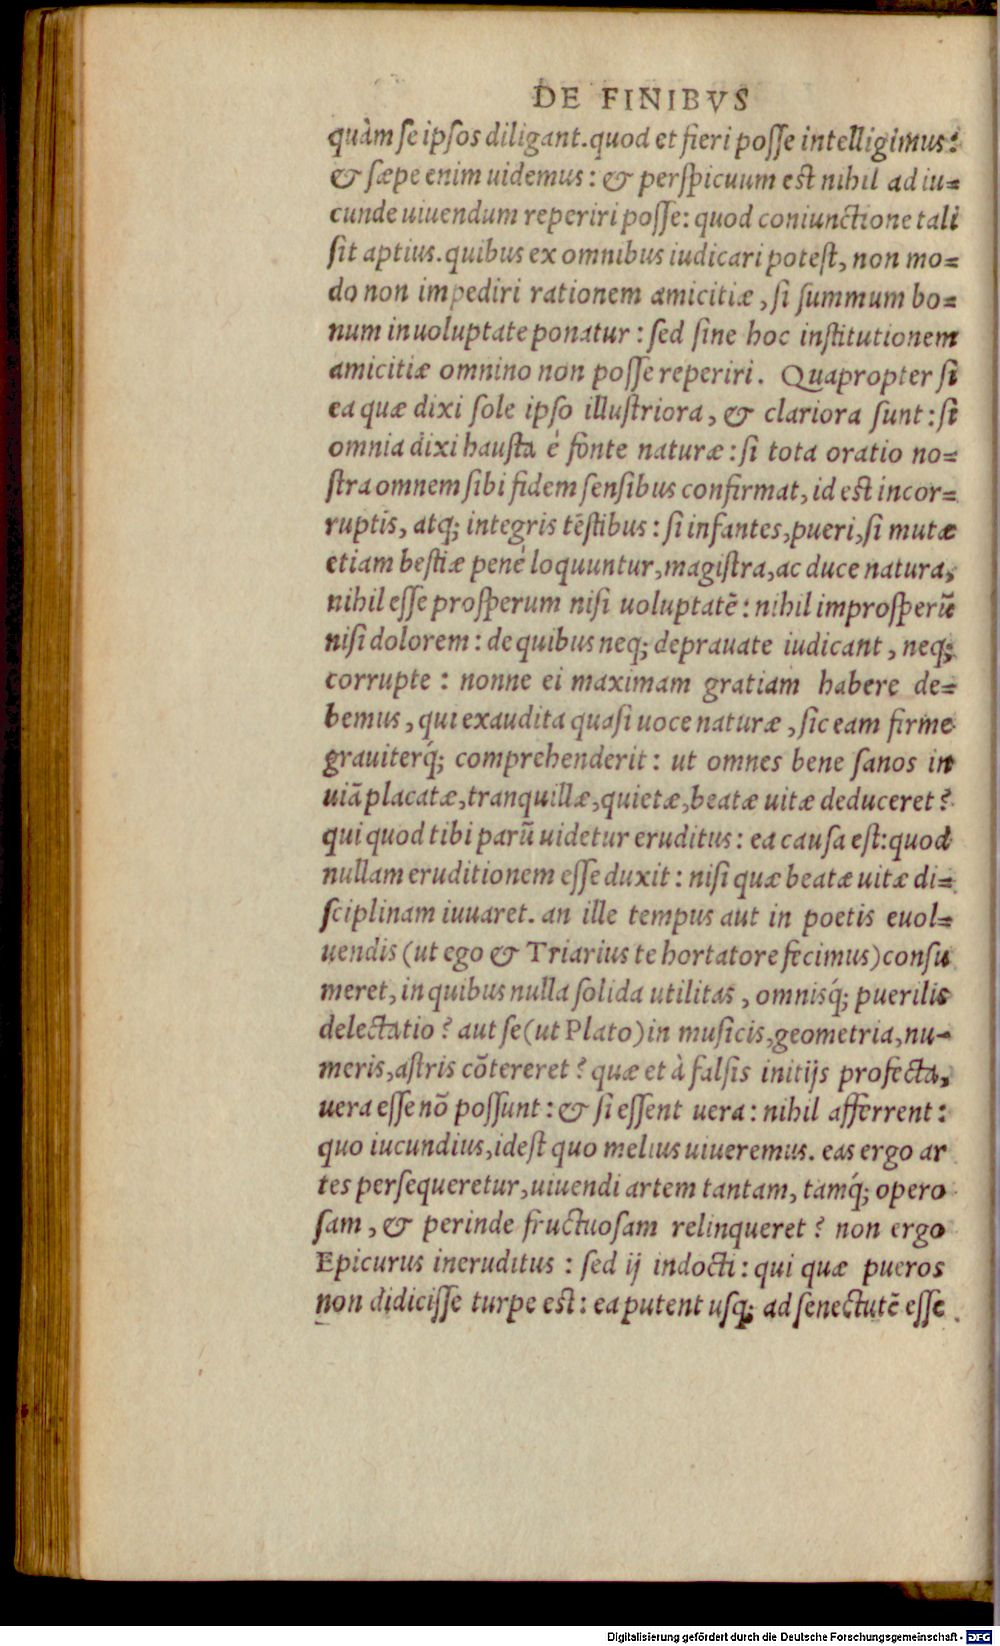 DE FINIBVS
quàm se ipsos diligant. quod et fieri posse intelligimus:
& sæpe enim uidemus: & perspicuum est nihil ad iu=
cunde uiuendum reperiri posse: quod coniunctione tali
sit aptius. quibus ex omnibus iudicari potest, non mo=
do non impediri rationem amicitiæ, si summum bo=
num in uoluptate ponatur: sed sine hoc institutionem
amicitiæ omnino non posse reperiri. Quapropter si
ea quæ dixi sole ipso illustriora, & clariora sunt: si
omnia dixi hausta é fonte naturæ: si tota oratio no=
stra omnem sibi fidem sensibus confirmat, id est incor=
ruptis, atq; integris testibus: si infantes, pueri, si mutæ
etiam bestiæ pené loquuntur, magistra, ac duce natura,
nihil esse prosperum nisi uoluptatē: nihil improsperū
nisi dolorem: de quibus neq; deprauate iudicant, neq;
corrupte: nonne ei maximam gratiam habere de=
bemus, qui exaudita quasi uoce naturæ, sic eam firme
grauiterq́; comprehenderit: ut omnes bene sanos in
uiā placatæ, tranquillæ, quietæ, beatæ uitæ deduceret?
qui quod tibi parū uidetur eruditus: ea causa est: quod
nullam eruditionem esse duxit: nisi quæ beatæ uitæ di=
sciplinam iuuaret. an ille tempus aut in poetis euol=
uendis (ut ego & Triarius te hortatore fecimus) consu
meret, in quibus nulla solida utilitas, omnisq́; puerilis
delectatio? aut se (ut Plato) in musicis, geometria, nu-
meris, astris cōtereret? quæ et à falsis initijs profecta,
uera esse nō possunt: & si essent uera: nihil afferrent:
quo iucundius, idest quo melius uiueremus. eas ergo ar
tes persequeretur, uiuendi artem tantam, tamq́; opero
sam, & perinde fructuosam relinqueret? non ergo
Epicurus ineruditus: sed ij indocti: qui quæ pueros
non didicisse turpe est: ea putent usq; ad senectutē esse
Digitalisierung gefördert durch die Deutsche Forschungsgemeinschaft - DFG